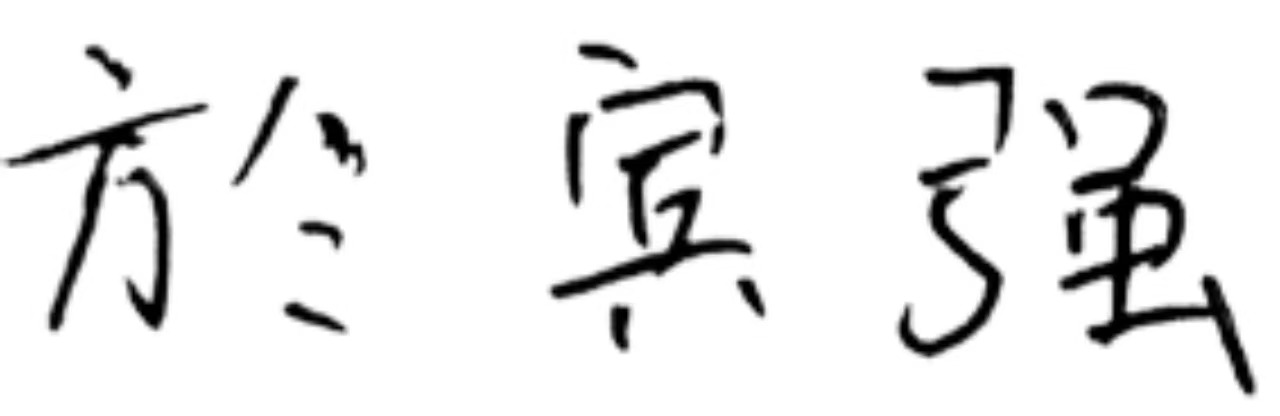 於宾强